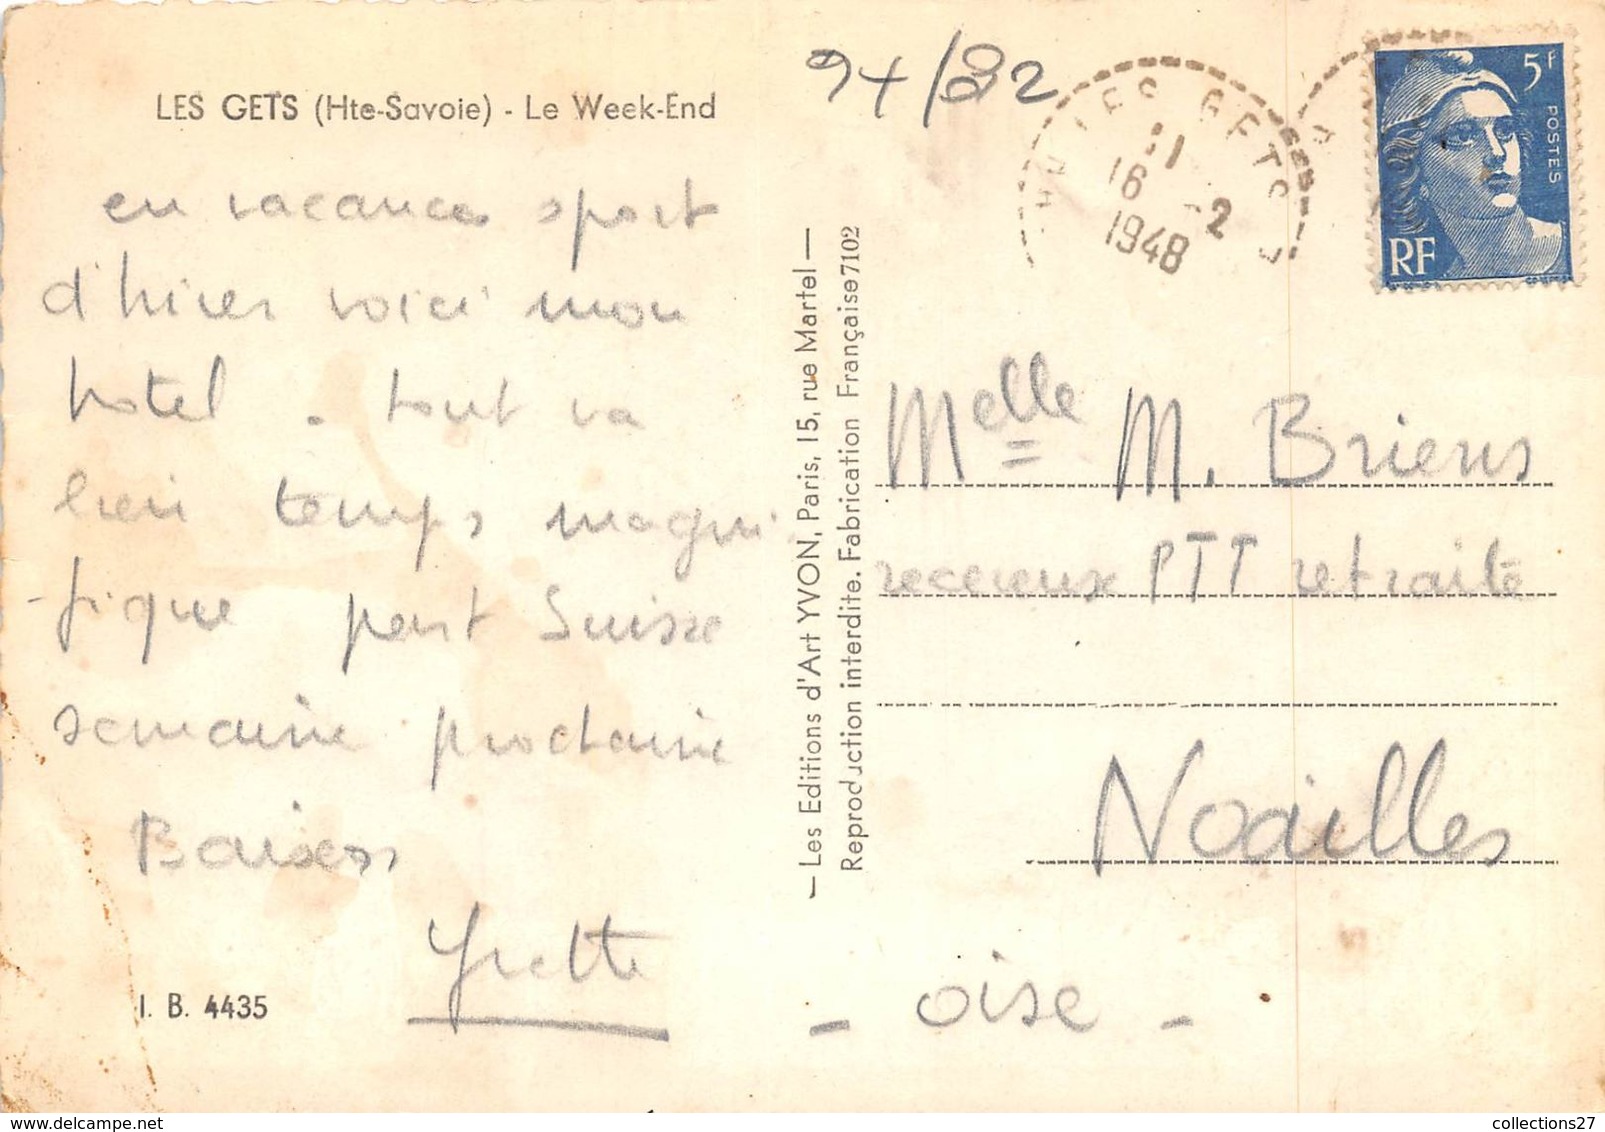 LES GETS (Hte-Savoie) - Le Week-End
en vacances sport
d'hiver voici mon
hotel - tout va
bien temps magni
-fique part Suisse
semaine prochaine
Baisers
Yvette
I. B. 4435
— Les Editions d'Art YVON, Paris, 15, rue Martel —
Reproduction interdite. Fabrication Française 7102
94/832
LES GETS
16 -2
1948
5F
POSTES
RF
Melle M. Briens
receveuse PTT retraité
Noailles
- oise -
collections27